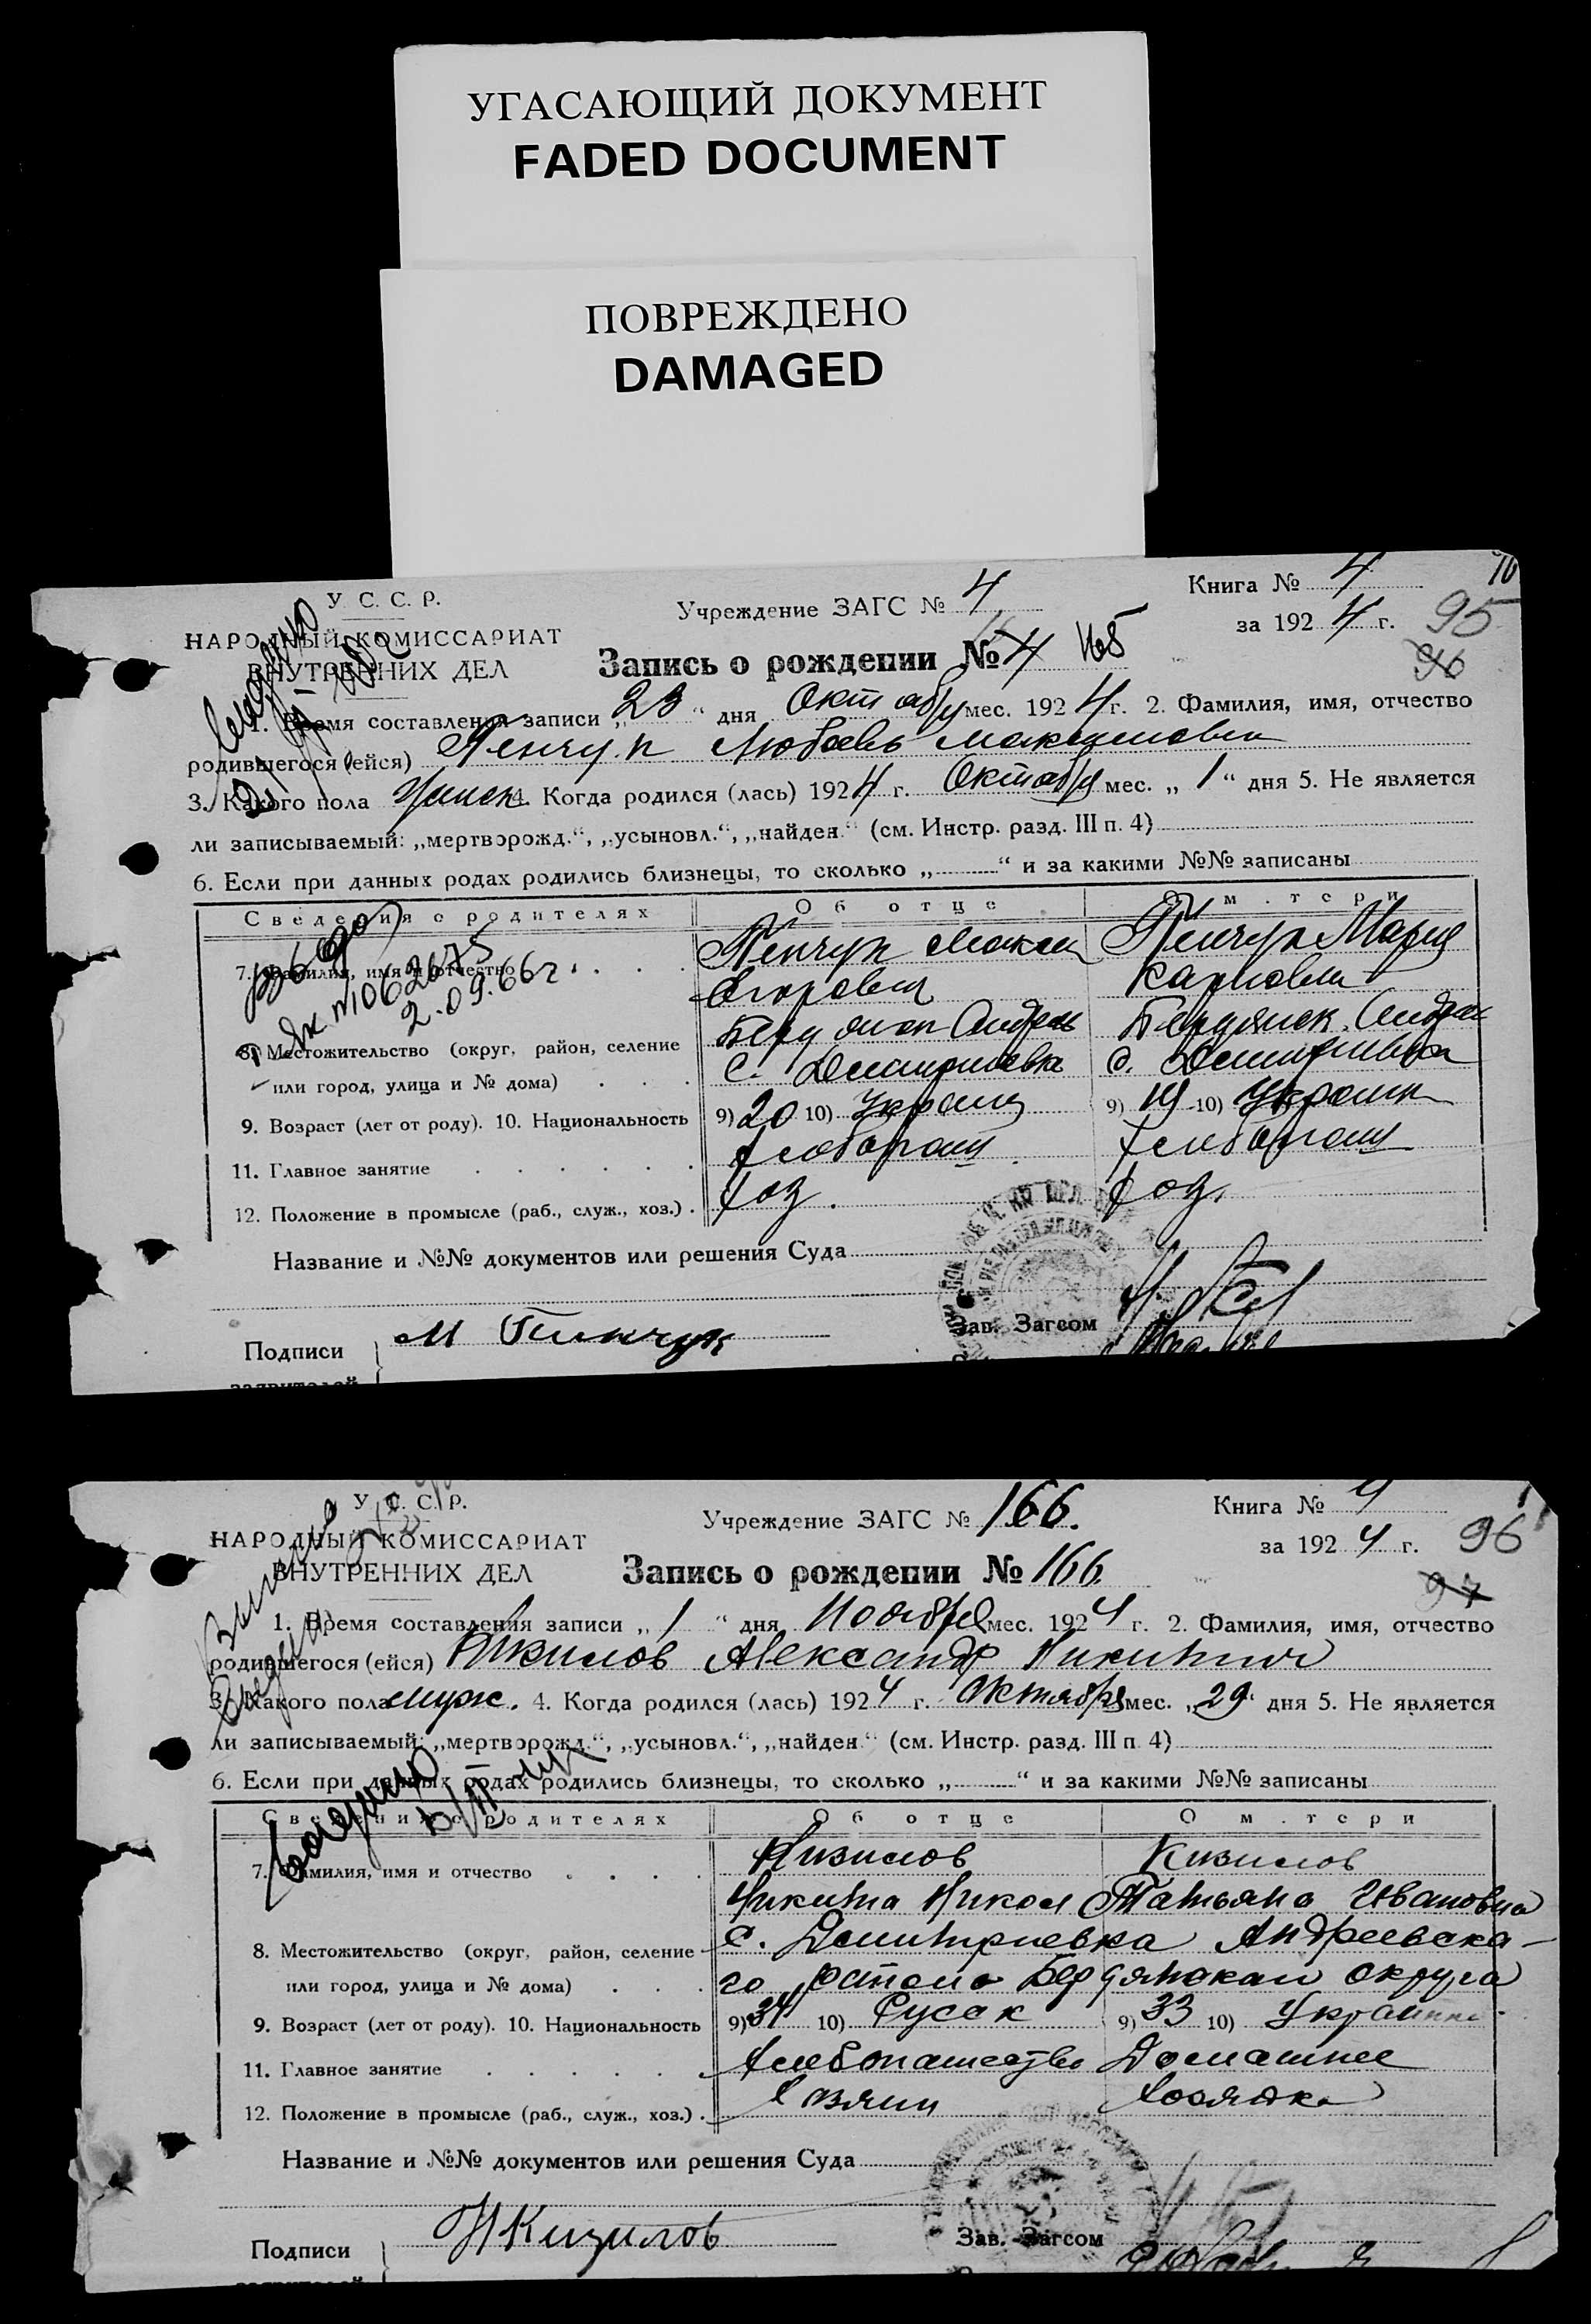 УГАСАЮЩИЙ ДОКУМЕНТ
FADED DOCUMENT
ПОВРЕЖДЕНО
DAMAGED
У. С. С. Р.
НАРОДНЫЙ КОМИССАРИАТ
ВНУТРЕННИХ ДЕЛ
Учреждение ЗАГС № 4
Книга № 4
за 1924 г.
95
96
Запись о рождении № 4 165
1. Время составления записи „23“ дня Октября мес. 1924 г. 2. Фамилия, имя, отчество
родившегося (ейся) Пенчук Любовь Максимовна
3. Какого пола женск. 4. Когда родился (лась) 1924 г. Октября мес. „1“ дня 5. Не является
ли записываемый: „мертворожд.“, „усыновл.“, „найден.“ (см. Инстр. разд. III п. 4)
6. Если при данных родах родились близнецы, то сколько „ “ и за какими №№ записаны
Сведения о родителях Об отце О матери
7. Фамилия, имя и отчество Пенчук Максим Пенчук Мария
Егорович Карповна
2.09.66г.
8. Местожительство (округ, район, селение
или город, улица и № дома) с. Дмитриевка с. Дмитриевка
9. Возраст (лет от роду). 10. Национальность 9) 20 10) Украин 9) 19 10) Украин
11. Главное занятие хлебопаш хлебопаш
12. Положение в промысле (раб., служ., хоз.) хоз. хоз.
Название и №№ документов или решения Суда
Подписи М Пинчук
Зав. Загсом
У. С. С. Р.
НАРОДНЫЙ КОМИССАРИАТ
ВНУТРЕННИХ ДЕЛ
Учреждение ЗАГС № 166.
Книга № 4
за 1924 г.
96
97
Запись о рождении № 166
1. Время составления записи „1“ дня Ноября мес. 1924 г. 2. Фамилия, имя, отчество
родившегося (ейся) Кизилов Александр Никитич
3. Какого пола муж. 4. Когда родился (лась) 1924 г. Октября мес. „29“ дня 5. Не является
ли записываемый: „мертворожд.“, „усыновл.“, „найден.“ (см. Инстр. разд. III п. 4)
6. Если при данных родах родились близнецы, то сколько „ “ и за какими №№ записаны
Сведения о родителях Об отце О матери
7. Фамилия, имя и отчество Кизилов Кизилов
Никита Никол Татьяна Ивановна
8. Местожительство (округ, район, селение с. Дмитриевка Андреевска-
или город, улица и № дома) го района Бердянскаи округа
9. Возраст (лет от роду). 10. Национальность 9) 34 10) Русак 9) 33 10) Украинк
11. Главное занятие Хлебопашество Домашнее
12. Положение в промысле (раб., служ., хоз.) Хозяин Хозяйка
Название и №№ документов или решения Суда
Подписи НКизилов
Зав. Загсом